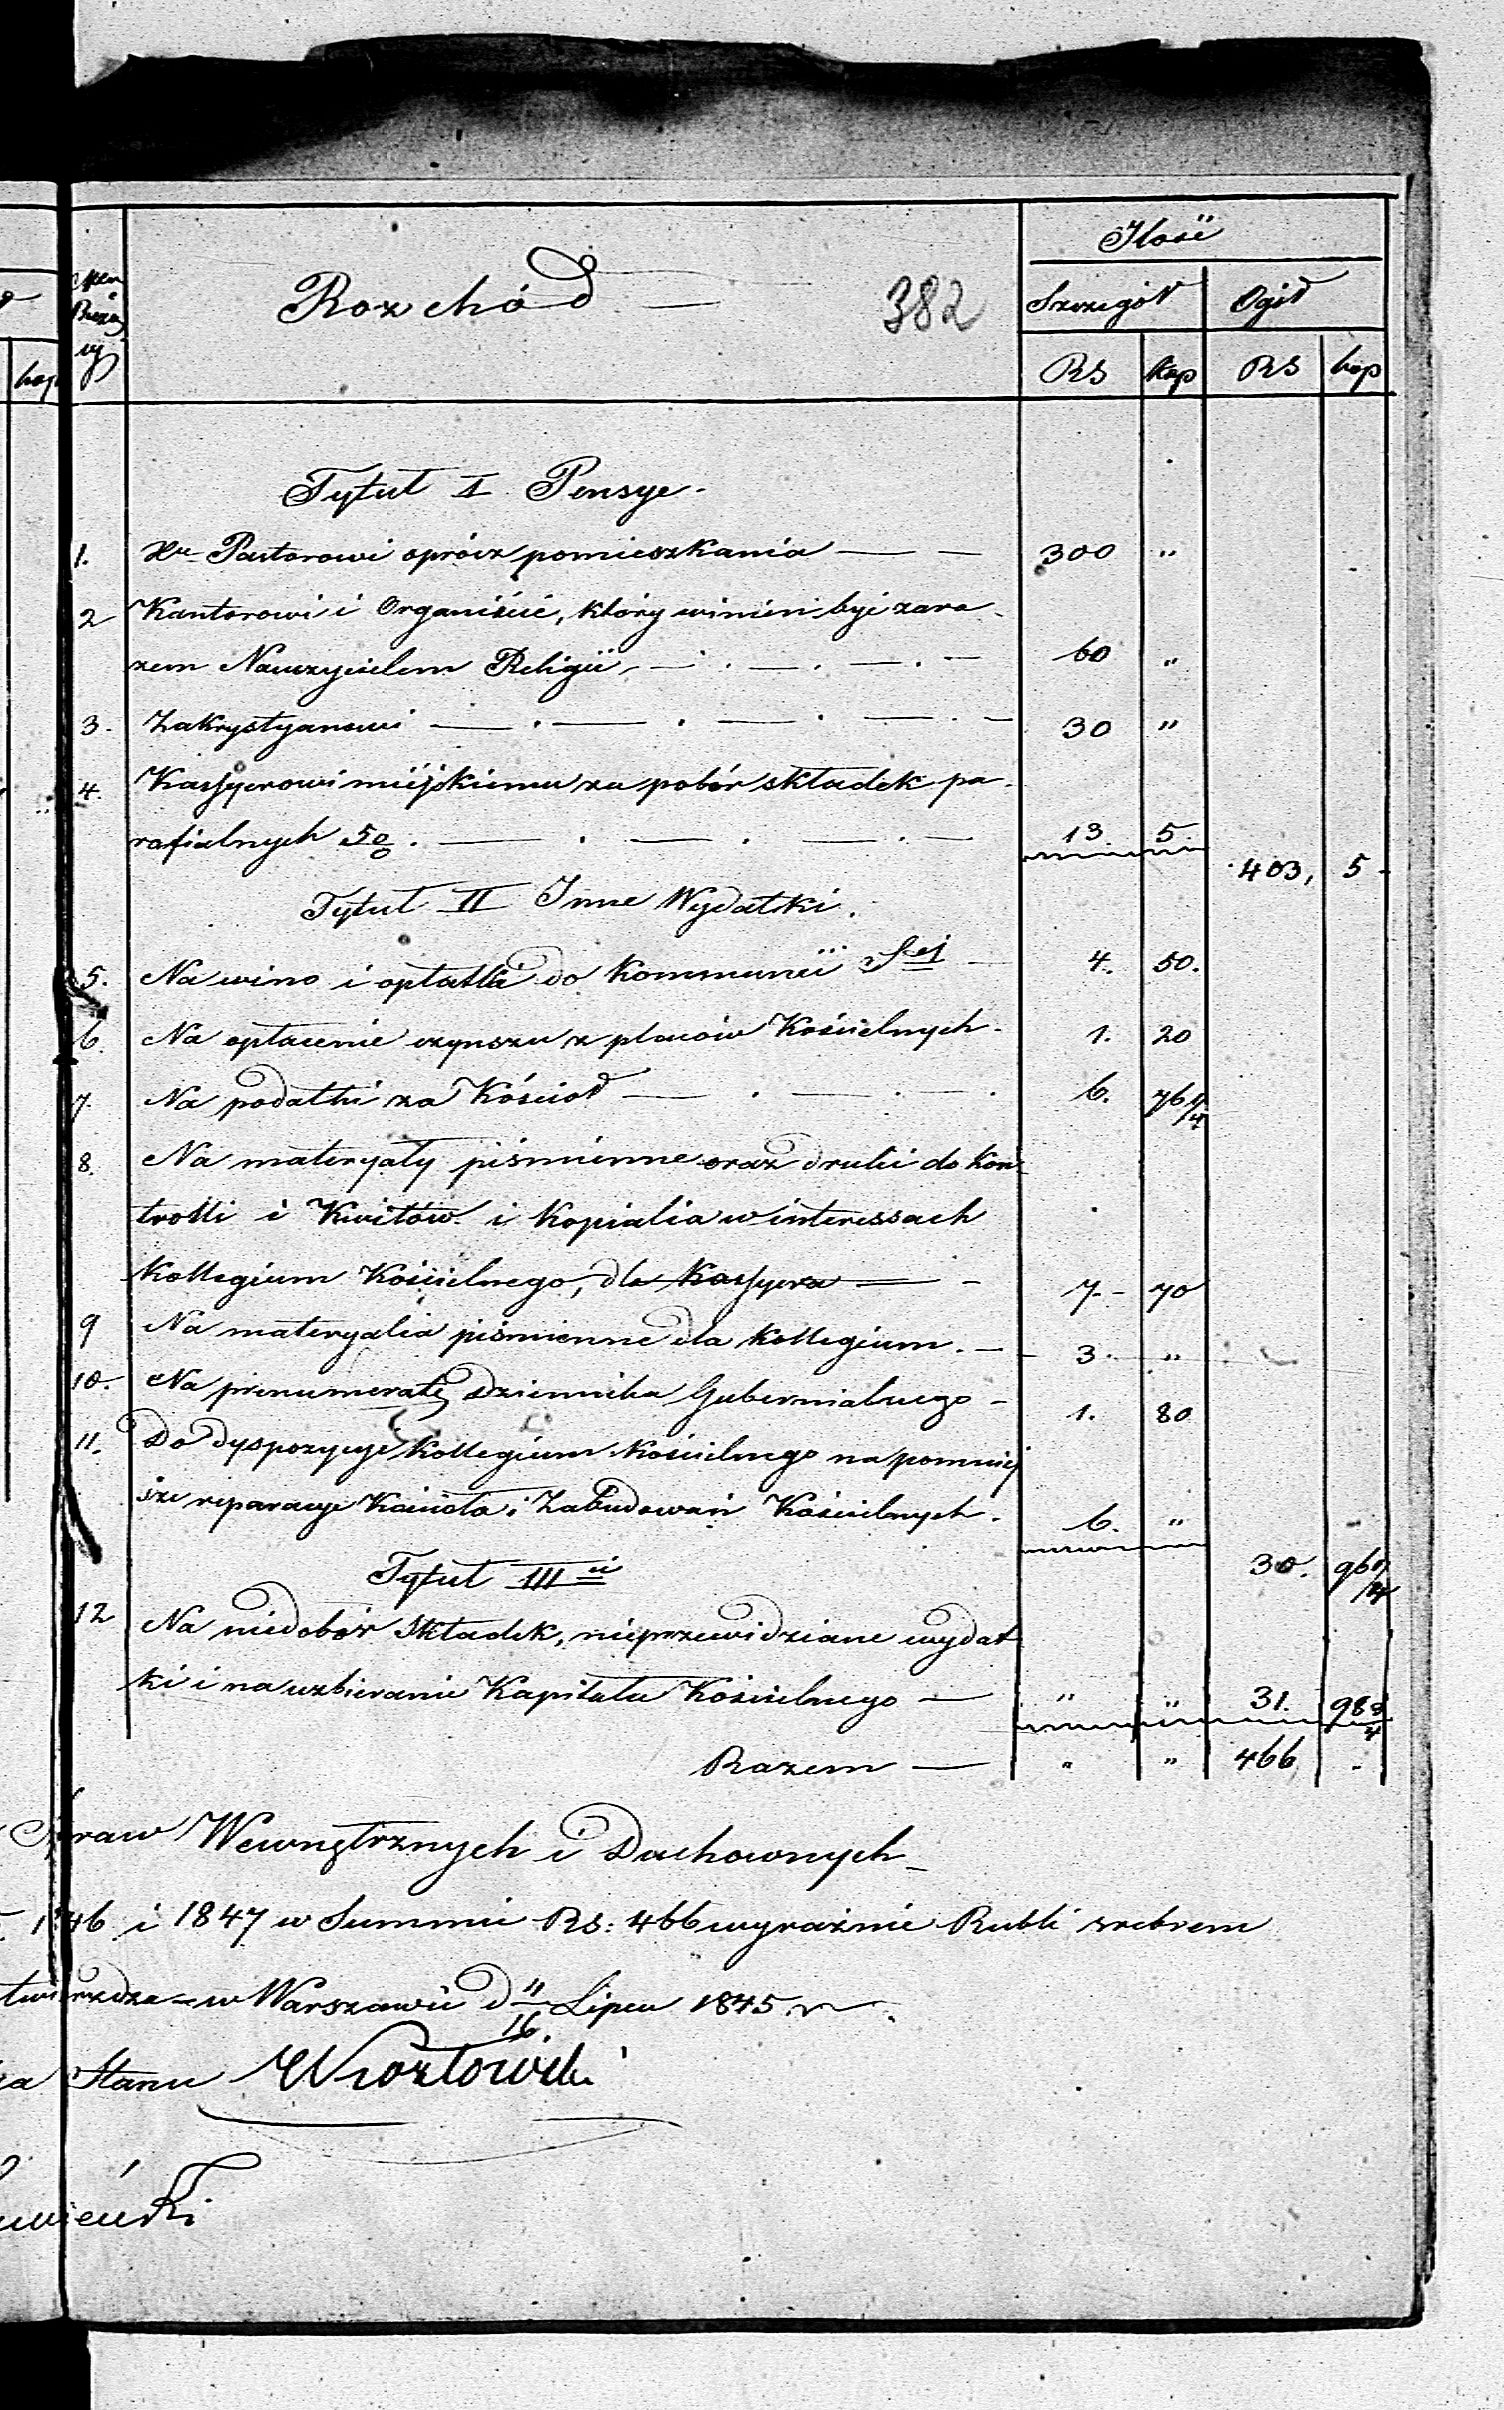 Ilość
Rozchód — 382
Szczegół Ogół
RS kop RS kop
kop
Tytuł I Pensye.
1. Xu Pastorowi oprócz pomieszkania — — 300 "
2 Kantorowi i Organiście, który winien być zara-
zem Nauczycielem Religii, — . — . — . — 60 "
3. Zakrystyanowi — . — . — . — . — 30 "
4. Kassyerowi miejskiemu za pobór składek pa-
rafialnych 5%. — . — . — . — 13 5
403, 5
Tytuł II Inne Wydatki.
5. Na wino i opłatki do Kommunii Stej — 4. 50.
6. Na opłacenie czynszu z placów Kościelnych. 1. 20
7. Na podatki za Kościoł — . — . — . 6. 76 1/4
8. Na materyały piśmienne oraz druki do kon-
trolli i Kwitów i kopialia w interessach
Kollegium Kościelnego, dla Kassyera — - 7. - 70
9 Na materyalia piśmienne dla Kollegium. — 3. "
10. Na prenumeratę dziennika Gubernialnego - 1. 80
11. Do dyspozycyi Kollegium Kościelnego na pomniej
sze reparacye Kościoła i Zabudowań Kościelnych. 6. "
30. 96 1/4
Tytuł III
12 Na niedobór składek, nieprzewidziane wydat
ki i na uzbieranie Kapitału Kościelnego — " " 31. 98 3/4
Razem — " " 466 -
Spraw Wewnętrznych i Duchownych
1846 i 1847 w Summie RS: 466 wyraźnie Rubli srebrem
twierdza - w Warszawie d 4/16 Lipca 1845 r.
Stanu